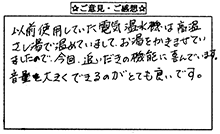 ☆ご意見・ご感想☆
以前使用していた電気温水機は高温
さし湯で温めていまして、お湯をかきませてい
ましたので、今回、追いだきの機能に喜んでいます。
音量も大きくできるのがとても良いです。